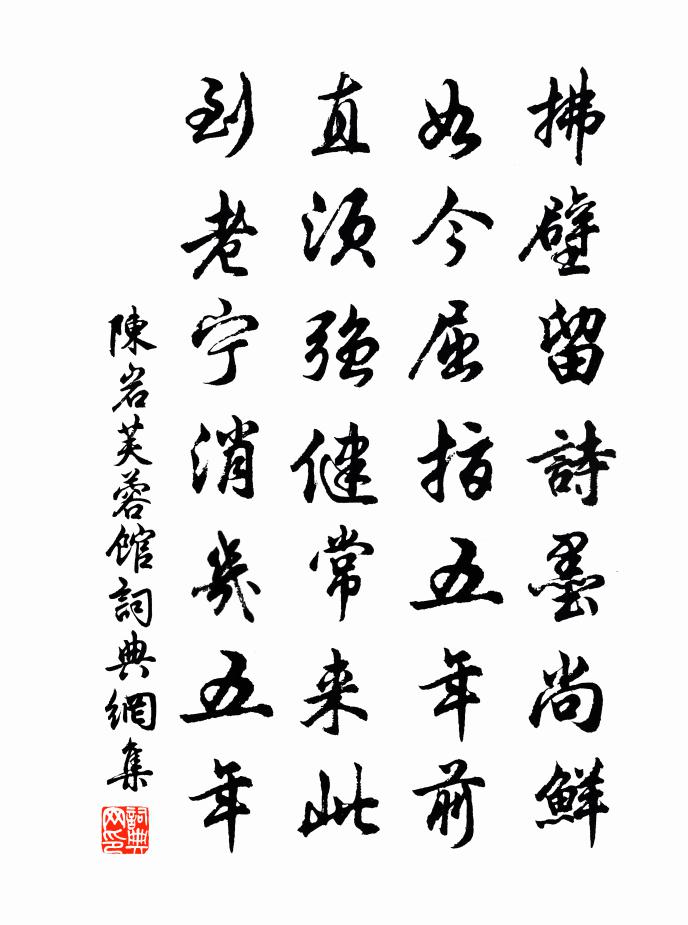 拂壁留詩墨尚鮮
如今屈指五年前
直須強健常来此
到老宁消幾五年
陳岩芙蓉館詞典網集
詞典网印